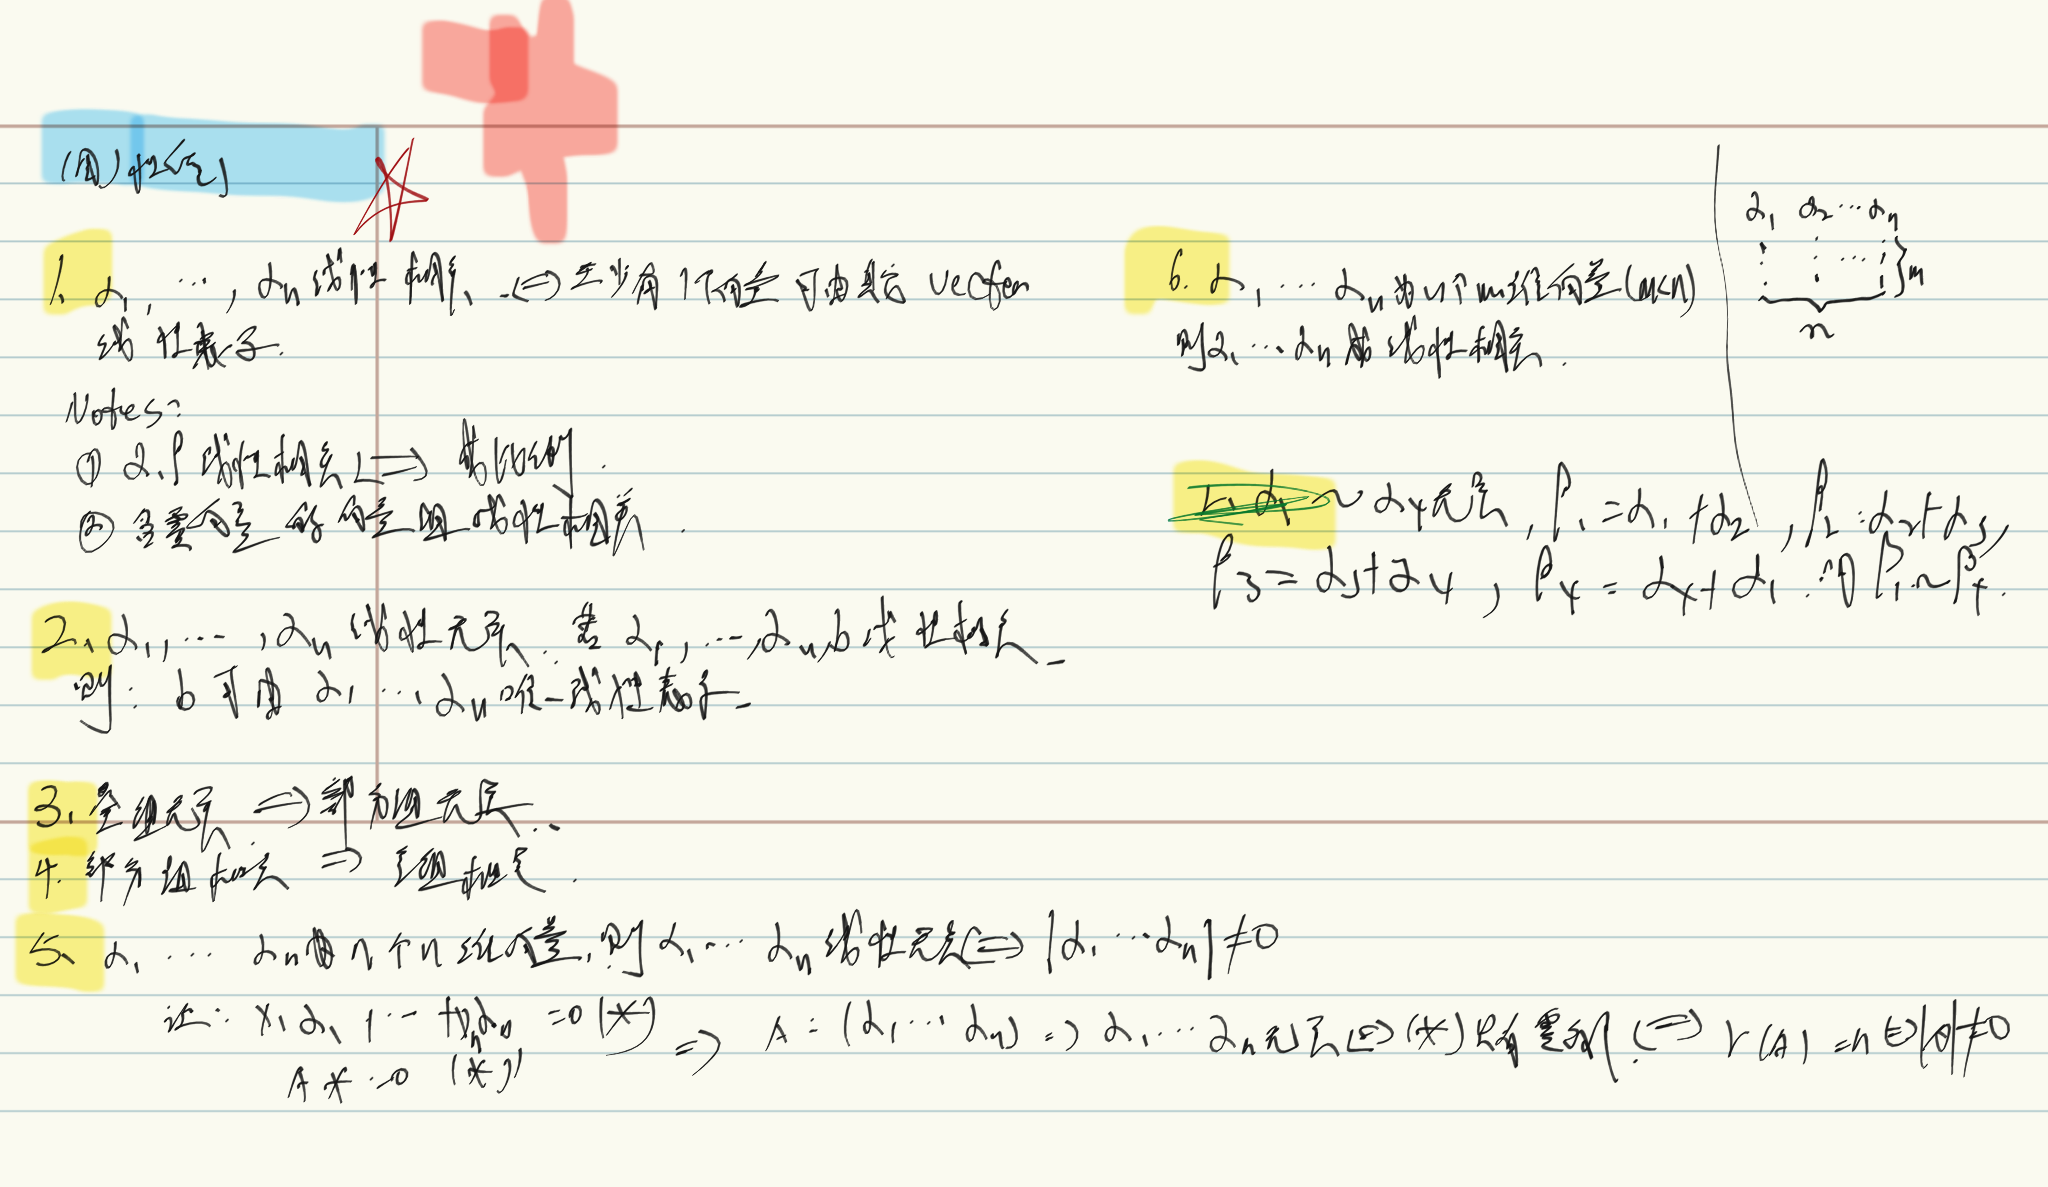 (用) 性质
1. α₁, ⋯, αn 线性相关 ⟺ 至少有1个向量可由其它 vector
线性表示.
Notes:
① α, β 线性相关 ⟺ 成比例.
② 含零向量的向量组线性相关.
2. α₁, ⋯, αn 线性无关. 若 α₁, ⋯, αn, b 线性相关
则: b 可由 α₁ ⋯ αn 唯一线性表示
3. 全组无关 ⟹ 部分组无关.
4. 部分组相关 ⟹ 全组相关.
5. α₁ ⋯ αn 为 n 个 n 维向量, 则 α₁ ⋯ αn 线性无关 ⟺ |α₁ ⋯ αn| ≠ 0
证: x₁α₁ + ⋯ + xnαn = 0 (*) ⟹ A = (α₁ ⋯ αn) ⟹ α₁ ⋯ αn 无关 ⟺ (*) 只有零解. ⟺ r(A) = n ⟺ |A| ≠ 0
AX = 0 (*')
6. α₁ ⋯ αn 为 n 个 m 维向量 (m<n)
则 α₁ ⋯ αn 线性相关.
α₁ α₂ ⋯ αn
m
n
α₁ ~ α₄ 无关, β₁ = α₁ + α₂, β₂ = α₂ + α₃,
β₃ = α₃ + α₄, β₄ = α₄ + α₁. 问 β₁ ~ β₄.